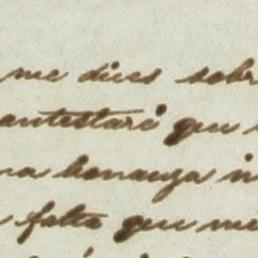 me dices sobr
antestaré que
na bonanza in
falta que me